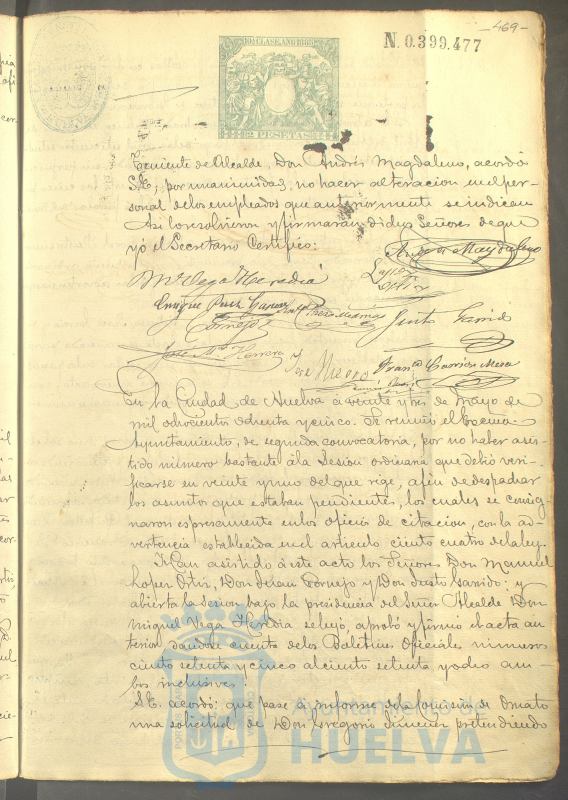 469-
N. 0.399.477
10ª CLASE. AÑO 1885
2 PESETAS
Teniente de Alcalde, Don Andrés Magdaleno, acordó
S.E., por unanimidad, no hacer alteracion en el per-
sonal de los empleados que anteriormente se indican
Asi lo resolvieron y firmarán dichos Señores de que
yó el Secretario Certifico:
Andrés Magdaleno
M. Vega Heredia
Lopez
Ortiz
Enrique Ruiz
Cornejo
Justo Garrido
José Mª Herrera
Franco
En la Ciudad de Huelva á veinte y tres de Mayo de
mil ochocientos ochenta y cinco. Se reunió el Excmo.
Ayuntamiento, de segunda convocatoria, por no haber asis-
tido número bastante á la Sesion ordinaria que debió veri-
ficarse en veinte y uno del que rige, afin de despachar
los asuntos que estaban pendientes, los cuales se consig-
naron espresamente en los oficios de citacion, con la ad-
vertencia establecida en el articulo ciento cuatro de la ley.
Han asistido á este acto los Señores Don Manuel
Lopez Ortiz, Don Cornejo y Don Justo Garrido: y
abierta la Sesion bajo la presidencia del Señor Alcalde Don
Miguel Vega Heredia se leyó, aprobó y firmó el acta an-
terior dandose cuenta de los Boletines Oficiales números
ciento setenta y cinco al ciento setenta y ocho am-
bos inclusives.
S.E. acordó que pase á informe de la Comision de Ornato
una solicitud de Don Gregorio Jimenez pretendiendo
Ayuntamiento de
HUELVA